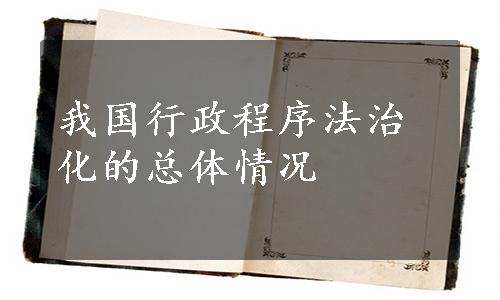 我国行政程序法治
化的总体情况